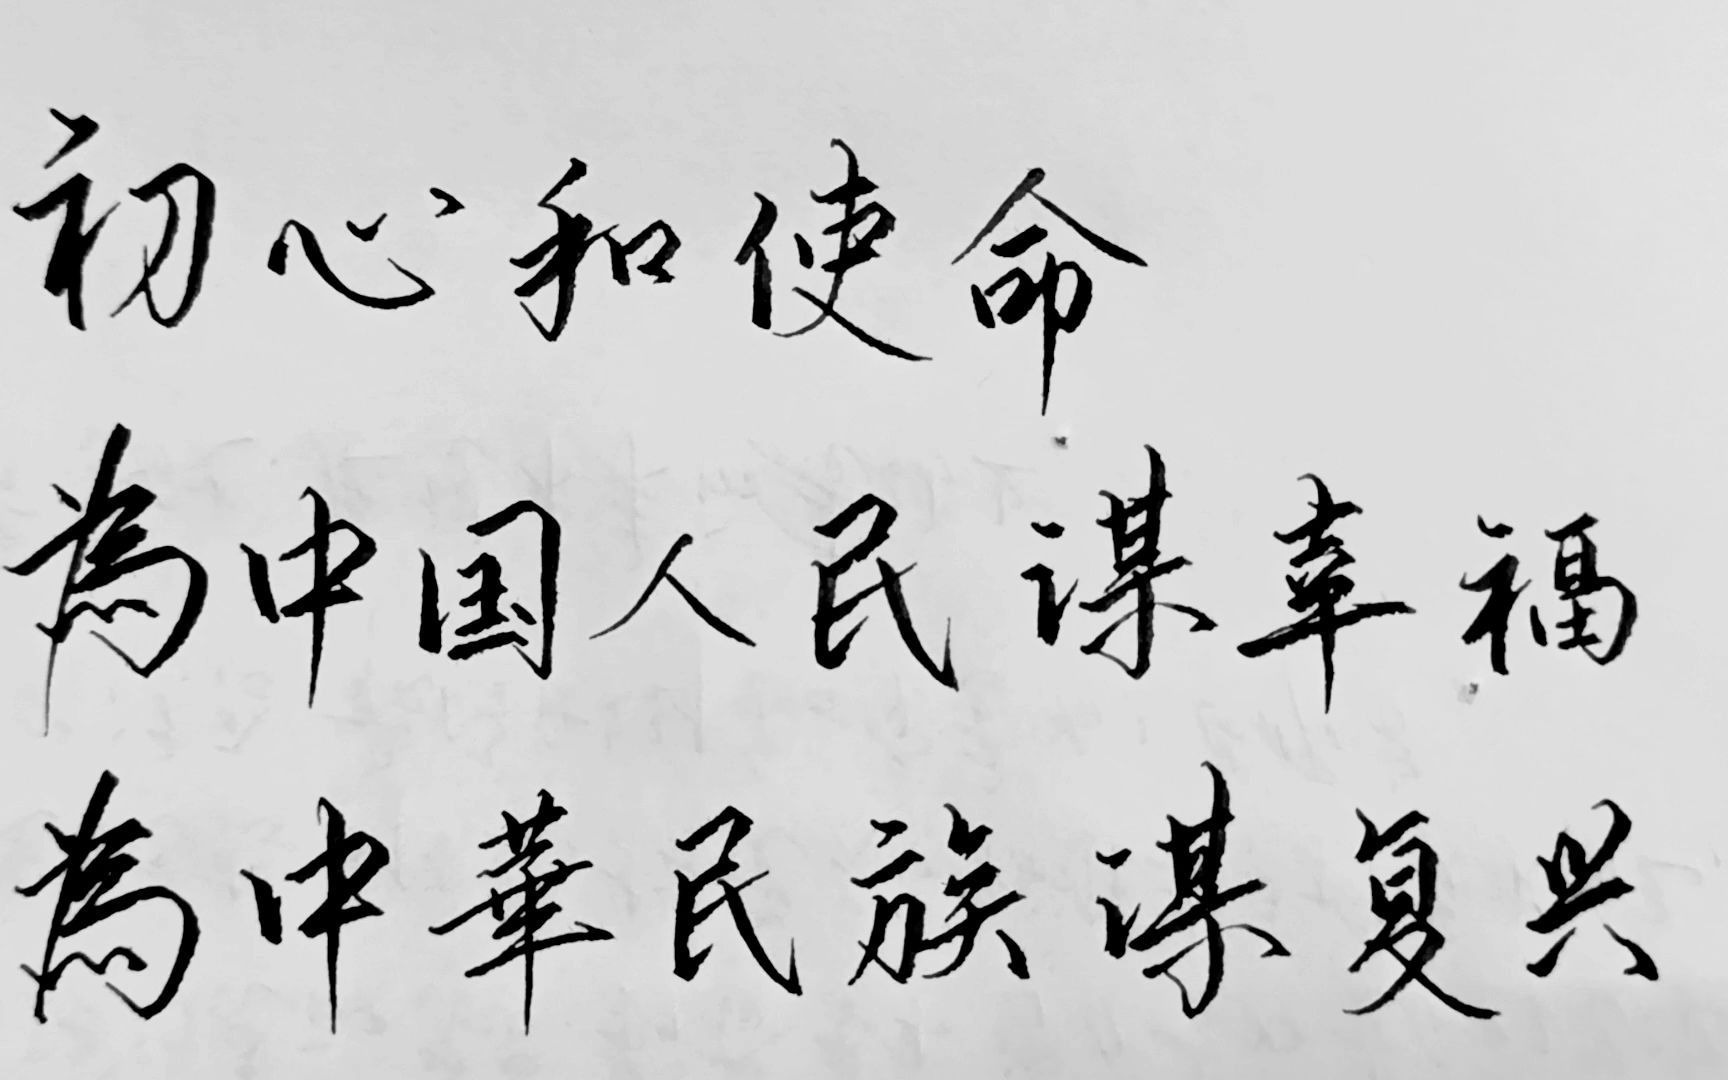 初心和使命
為中国人民谋幸福
為中華民族谋复兴